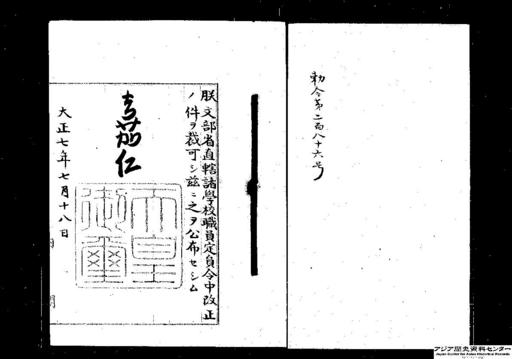 勅令第二百八十六号
朕文部省直轄諸學校職員定員令中改正
ノ件ヲ裁可シ茲ニ之ヲ公布セシム
嘉仁
天皇御璽
大正七年七月十八日
アジア歴史資料センター
Japan Center for Asian Historical Records